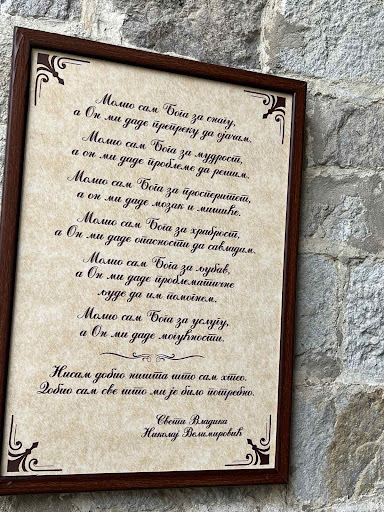 Молио сам Бога за снагу,
а Он ми даде препреку да ојачам.
Молио сам Бога за мудрост,
а он ми даде проблеме да решим.
Молио сам Бога за просперитет,
а он ми даде мозак и мишиће.
Молио сам Бога за храброст,
а Он ми даде опасности да савладам.
Молио сам Бога за љубав,
а Он ми даде проблематичне
људе да им помогнем.
Молио сам Бога за услугу,
а Он ми даде могућности.
Нисам добио ништа што сам хтео.
Добио сам све што ми је било потребно.
Свети Владика
Николај Велимировић